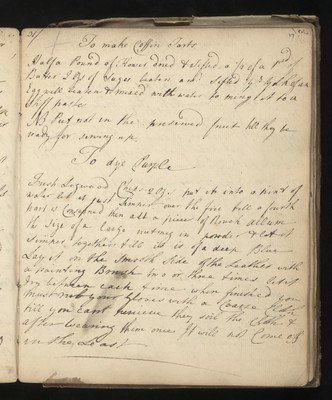 To make Coffin Tarts
Half a Pound of Flower dried & Sifted a 1/4 of a Pd of
Butter 2 Ozs of Sugar beaten and Sifted ye Yolk of an
Egg well beaten & mixed with water to ming it to a
Stiff paste
NB Put not in the preserved fruit till they be
ready for serving up
To dye Purple
Fresh Logwood Chips 2 Ozs put it into a pint of
water let it just Simper over the fire till a fourth
part is Consumed then add a piece of Roach Allum
the Size of a Large nutmeg in powder & let it
Simper together till it is of a deep blue
Lay it on the Smooth Side of the Leather with
a painting Brush two or three times let it
dry between each time when finished you
must rub your Gloves with a Coarse Cloth
till you Cant perceive they soil the Cloth &
after wearing them once It will not Come off
in the Least